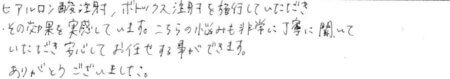 ヒアルロン酸注射、ボトックス注射を施行していただき
その効果を実感しています。こちらの悩みも非常に丁寧に聞いて
いただき安心してお任せする事ができます。
ありがとうございました。